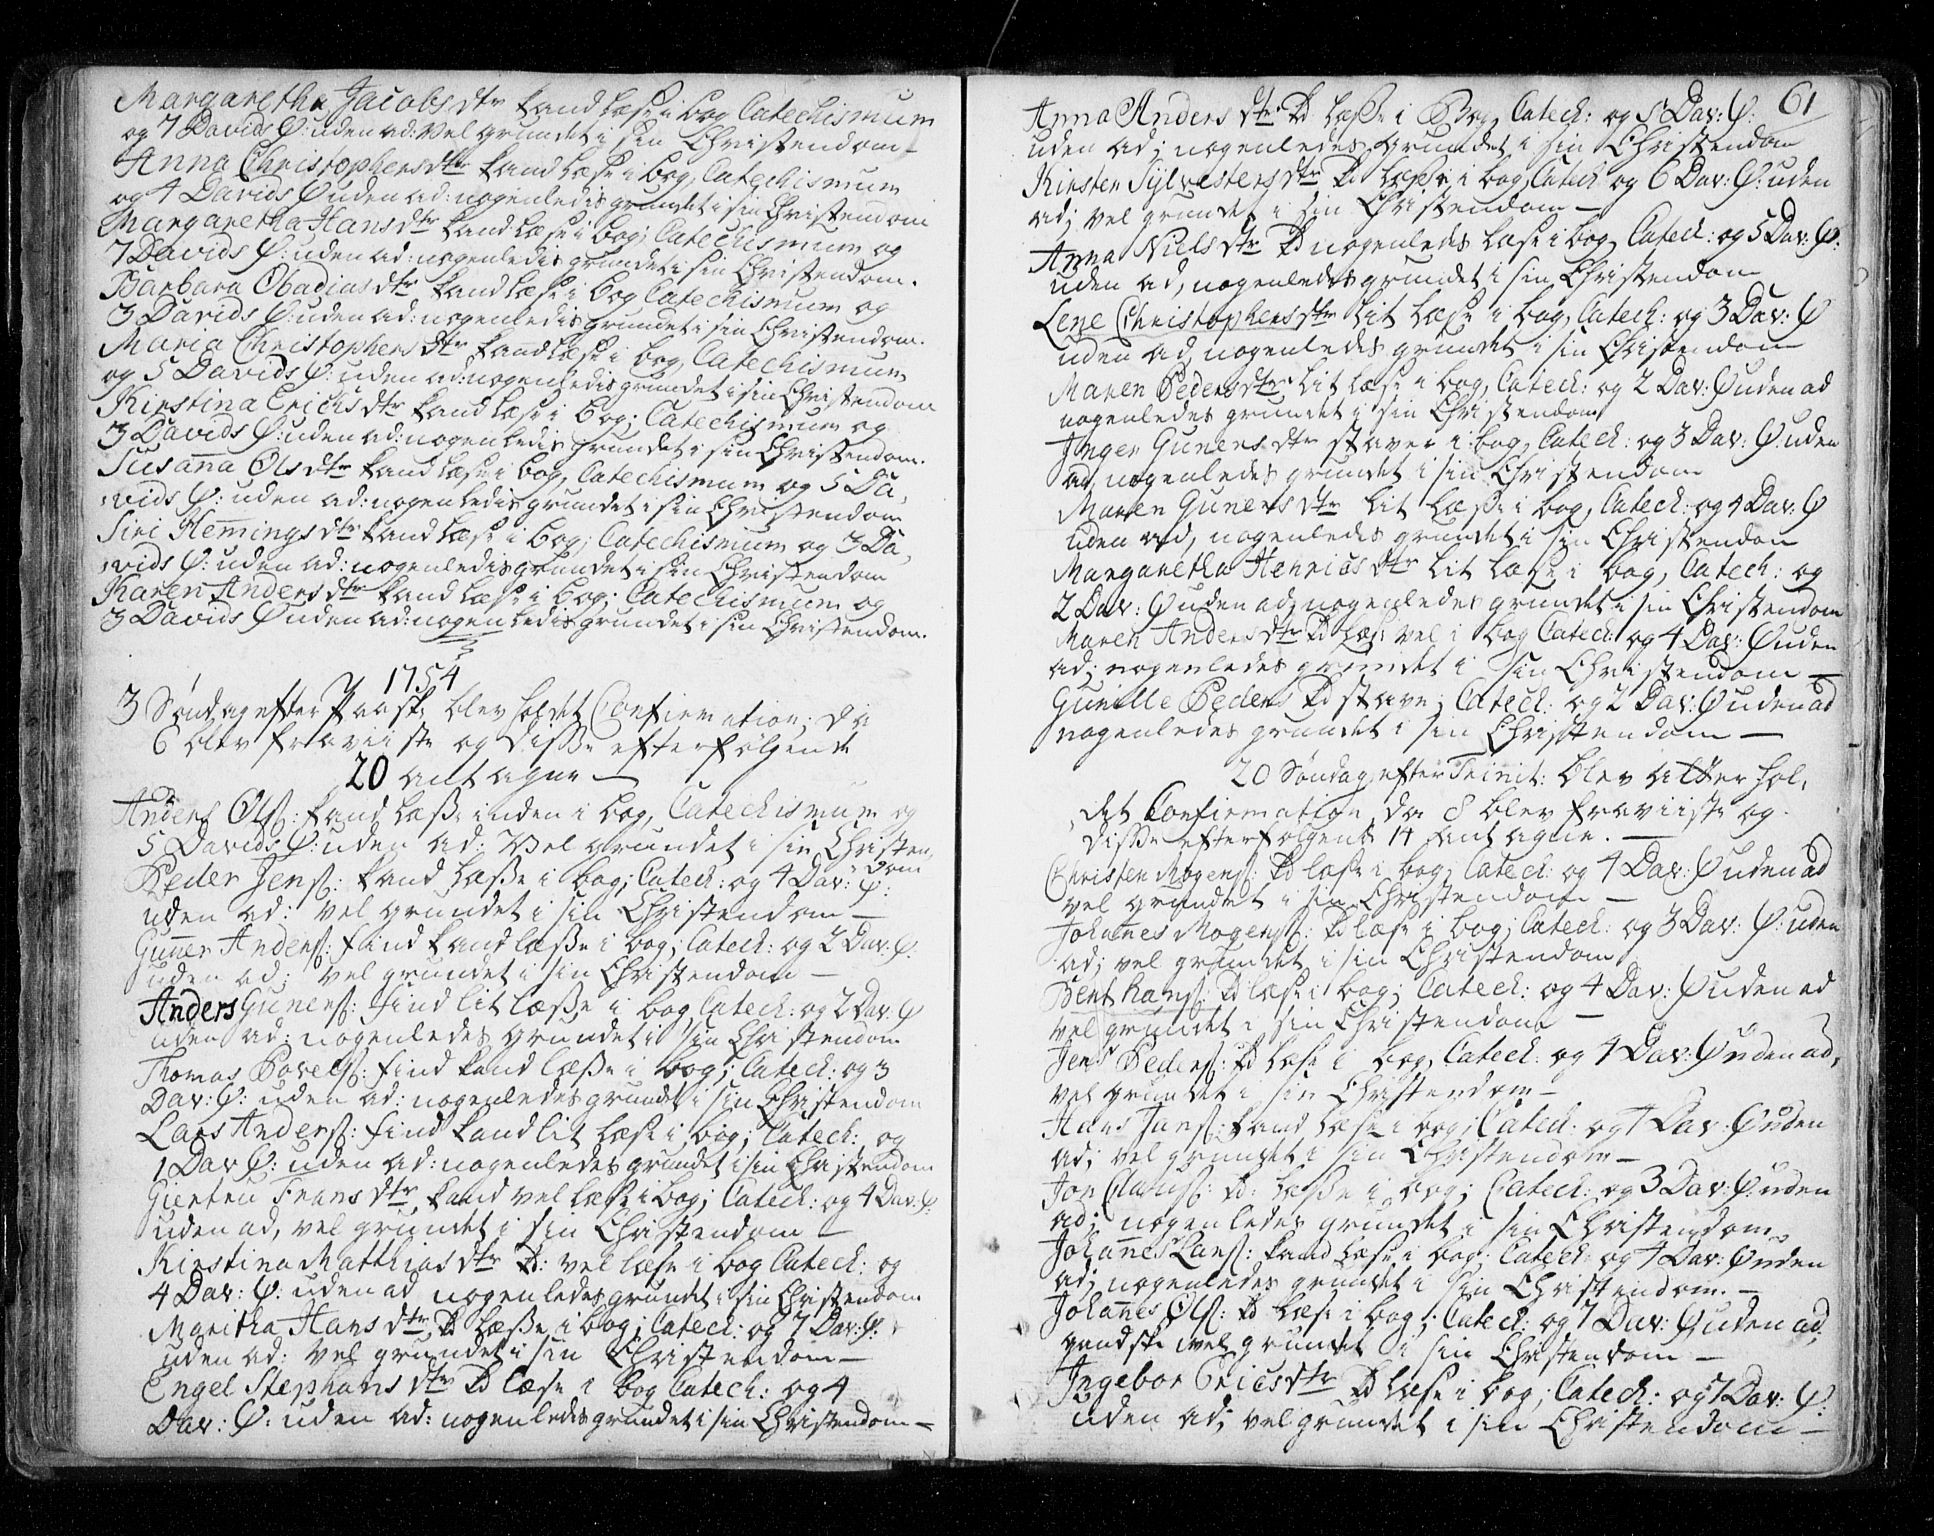 Margaretha Jacobsdtr kand læse i bog Catechismum
og 7 Davids Ψ: uden ad: Vel grundet i sin Christendom
Anna Christophersdtr kand læse i bog, Catechismum
og 4 Davids Ψ uden ad: nogenledis grundet i sin Christendom
Margaretha Hansdtr kand læse i bog; Catechismum og
7 Davids Ψ: uden ad: nogenledis grundet i sin Christendom.
Barbara Obadiasdtr kand læse i bog Catechismum og
3 Davids Ψ: uden ad: nogenledis grundet i sin Christendom.
Maria Christophersdtr kand læse i bog, Catechismum
og 5 Davids Ψ: uden ad: nogenledis grundet i sin Christendom
Kirstina Erichsdtr kand læse i bog; Catechismum og
3 Davids Ψ: uden ad: nogenledis grundet i sin Christendom.
Susanna Olsdtr kand læse i bog, Catechismum og 5 Da,
,vids Ψ: uden ad: nogenledis grundet i sin Christendom
Siri Hemmingsdtr kand læse i bog; Catechismum og 3 Da,
,vids Ψ: uden ad: nogenledis grundet i sin Christendom
Karen Andersdtr kand læse i bog; Catechismum og
3 Davids Ψ uden ad: nogenledis grundet i sin Christendom.
1754
3 Søndag efter Paaske blev holdet Confirmation; da
6 blev fraviiste og disse efterfølgende
20 antagne
Anders Ols: kand læsse inden i bog, Catechismum og
5 Davids Ψ: uden ad: Vel grundet i sin Christen,
dom
Peder Jens: kand læsse i bog; Catech: og 4 Dav: Ψ:
uden ad: vel grundet i sin Christendom —
Guner Anders: find kand læsse i bog; Catech: og 2 Dav: Ψ.
uden ad; vel grundet i sin Christendom —
Anders Guners: find lit læsse i bog Catech: og 2 Dav: Ψ
uden ad: nogenledes grundet i sin Christendom
Thomas Povels: find kand læsse i bog; Catech: og 3
Dav: Ψ: uden ad: nogenledes grundet i sin Christendom
Lars Anders: find kand lit læse i bog; Catech: og
1 Dav Ψ: uden ad: nogenledes grundet i sin Christendom
Giertru Fransdtr kand vel læse i bog; Catech: og 4 Dav: Ψ:
uden ad, vel grundet i sin Christendom —
Kirstina Matthiasdtr kd: vel læse i bog Catech: og
4 Dav: Ψ: uden ad nogenledes grundet i sin Christendom
Maritha Hansdtr kd læsse i bog; Catech: og 7 Dav: Ψ:
uden ad: vel grundet i sin Christendom —
Engel Stephansdtr kd læse i bog Catech: og 4
Dav: Ψ: uden ad: nogenledes grundet i sin Christendom —
61
Anna Andersdtr kd læsse i Bog, Catech: og 5 Dav: Ψ:
uden ad; nogenledes grundet i sin Christendom
Kirsten Sylvestersdtr kd læsse i bog, Catech og 6 Dav: Ψ: uden
ad; vel grundet i sin Christendom —
Anna Nielsdtr kd nogenledes læse i bog, Catech: og 5 Dav: Ψ:
uden ad, nogenledes grundet i sin Christendom
Lene Christophersdtr lit læse i bog, Catech: og 3 Dav: Ψ
uden ad, nogenledes grundet i sin Christendom
Maren Pedersdtr lit læse i bog, Catech: og 2 Dav: Ψ uden ad
nogenledes grundet i sin Christendom
Inger Gunersdtr staver i bog, Catech: og 3 Dav: Ψ: uden
ad, nogenledes grundet i sin Christendom
Maren Gunersdtr lit læsse i bog, Catech: og 4 Dav: Ψ
uden ad, nogenledes grundet i sin Christendom
Margaretha Henricsdtr lit læse i bog, Catech: og
2 Dav: Ψ uden ad, nogenledes grundet i sin Christendom
Maren Andersdtr kd læse vel i bog Catech: og 4 Dav: Ψ uden
ad; nogenledes grundet i sin Christendom —
Gunille Peders kd stave; Catech: og 2 Dav: Ψ uden ad
nogenledes grundet i sin Christendom —
20 Søndag efter Trinit: blev atter hol,
,det Confirmation, da 8 blev fraviiste og
disse efterfølgende 14 antagne. —
Christen Mogens: kd læse i bog, Catech: og 4 Dav: Ψ uden ad
vel grundet i sin Christendom —
Johannes Mogens: kd læse i bog; Catech: og 3 Dav: Ψ: uden
ad; vel grundet i sin Christendom
Bent Hans: kd læse i bog; Catech: og 4 Dav: Ψ uden ad
vel grundet i sin Christendom —
Jens Peders: kd læse i bog, Catech: og 4 Dav: Ψ uden ad,
vel grundet i sin Christendom —
Hans Jans: kand læse i bog; Catech: og 4 Dav: Ψ uden
ad; vel grundet i sin Christendom —
Jon Claus: kd: læsse i bog; Catech: og 3 Dav: Ψ: uden
ad; nogenledes grundet i sin Christendom
Johannes Lars: kand læse i bog; Catech: og 4 Dav: Ψ uden
ad; nogenledes grundet i sin Christendom. —
Johannes Ols: kd læse i bog; Catech: og 7 Dav: Ψ uden ad
gandske vel grundet i sin Christendom —
Ingebor Ericsdtr kd læse i bog; Catech: og 7 Dav: Ψ:
uden ad; vel grundet i sin Christendom —